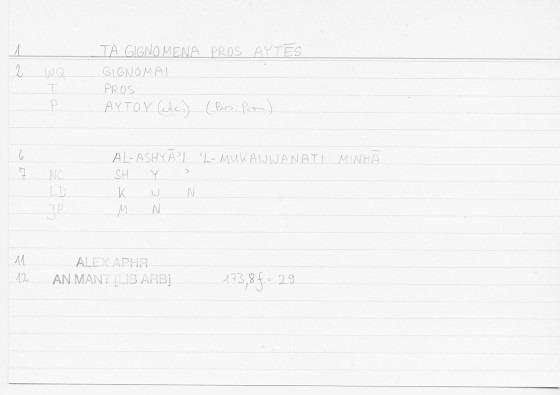 1 TA GIGNOMENA PROS AYTĒS
2 WQ GIGNOMAI
T PROS
P AYTOY (etc.) (Pers. Pron.)
6 AL-ASHYĀ'I 'L-MUKAWWANATI MINHĀ
7 NC SH Y '
LD K W N
JP M N
11 ALEX APHR
12 AN MANT [LIB ARB] 173,8f = 29